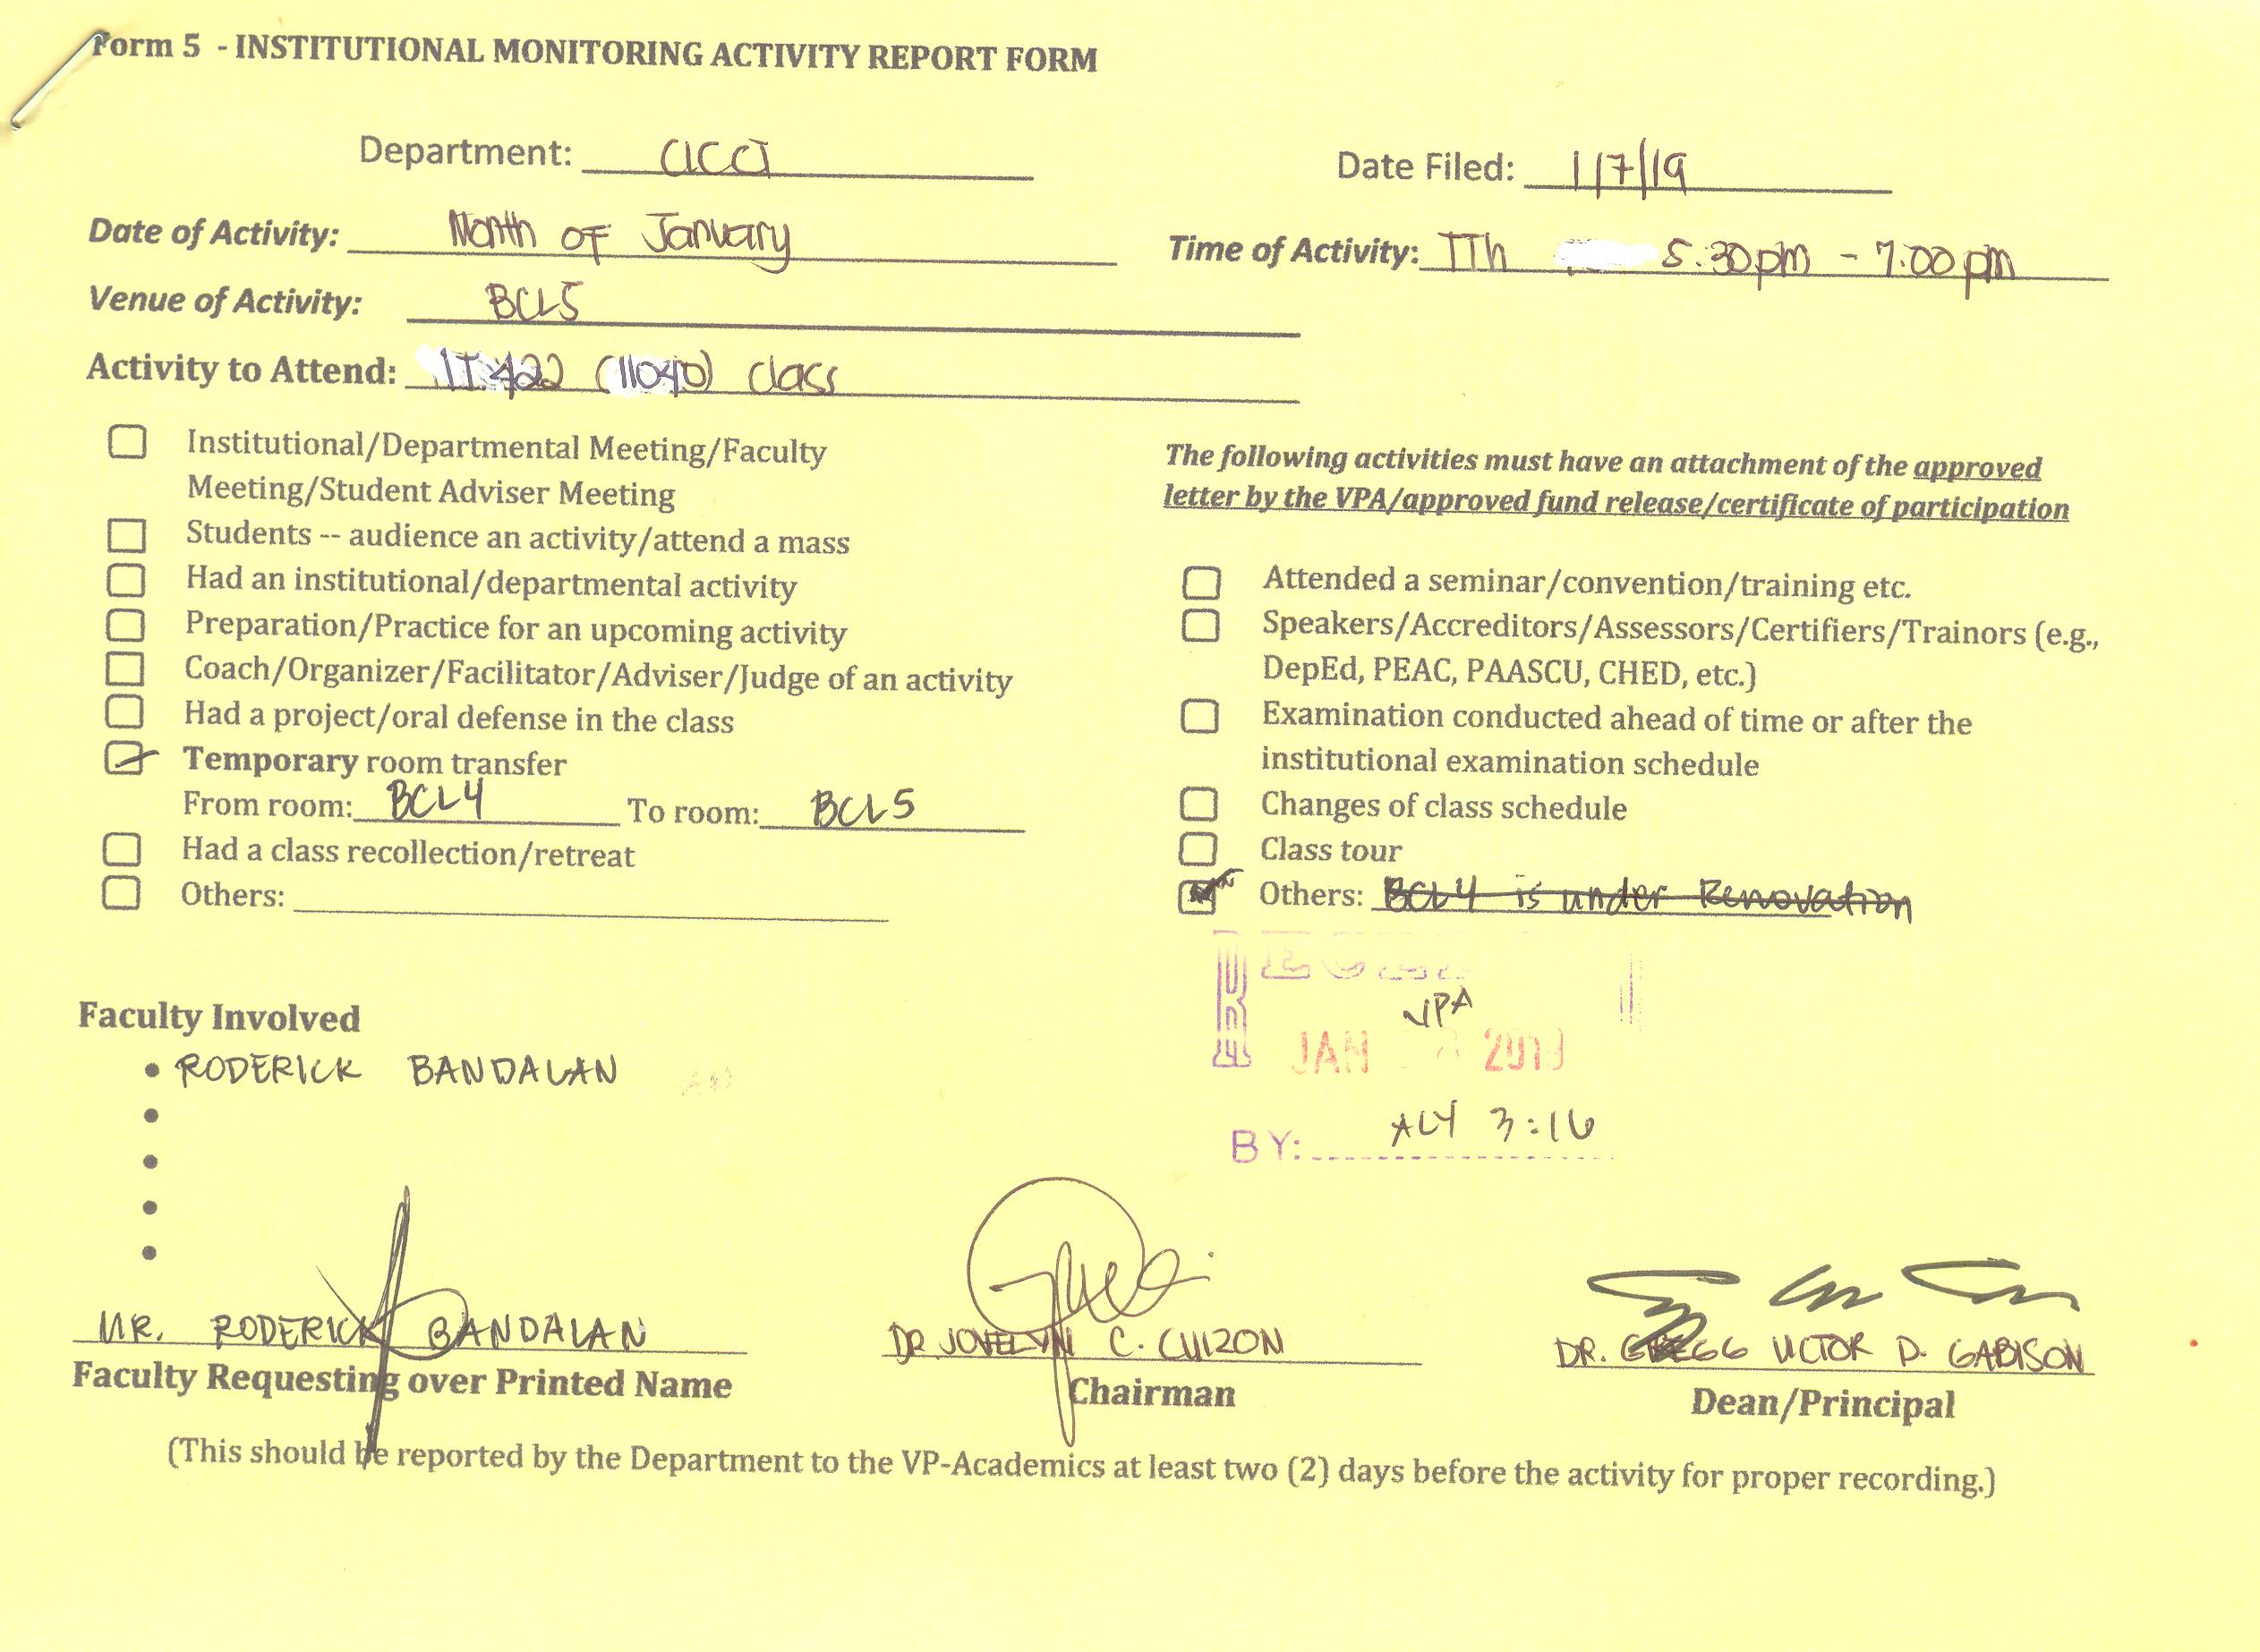 Form 5 - INSTITUTIONAL MONITORING ACTIVITY REPORT FORM
Department: CICCT
Date Filed: 1/7/19
Date of Activity: Month of January
Time of Activity: TTh 5:30pm - 7:00pm
Venue of Activity: BCL5
Activity to Attend: IT 422 (11040) class
Institutional/Departmental Meeting/Faculty
Meeting/Student Adviser Meeting
Students -- audience an activity/attend a mass
Had an institutional/departmental activity
Preparation/Practice for an upcoming activity
Coach/Organizer/Facilitator/Adviser/Judge of an activity
Had a project/oral defense in the class
Temporary room transfer
From room: BCL4 To room: BCL5
Had a class recollection/retreat
Others:
The following activities must have an attachment of the approved
letter by the VPA/approved fund release/certificate of participation
Attended a seminar/convention/training etc.
Speakers/Accreditors/Assessors/Certifiers/Trainors (e.g.,
DepEd, PEAC, PAASCU, CHED, etc.)
Examination conducted ahead of time or after the
institutional examination schedule
Changes of class schedule
Class tour
Others: BCL4 is under Renovation
VPA
JAN 2019
BY: ALY 3:16
Faculty Involved
• RODERICK BANDALAN
•
•
•
•
MR. RODERICK BANDALAN
Faculty Requesting over Printed Name
DR JOVELYN C. CUIZON
Chairman
DR. GREGG VICTOR D. GABISON
Dean/Principal
(This should be reported by the Department to the VP-Academics at least two (2) days before the activity for proper recording.)